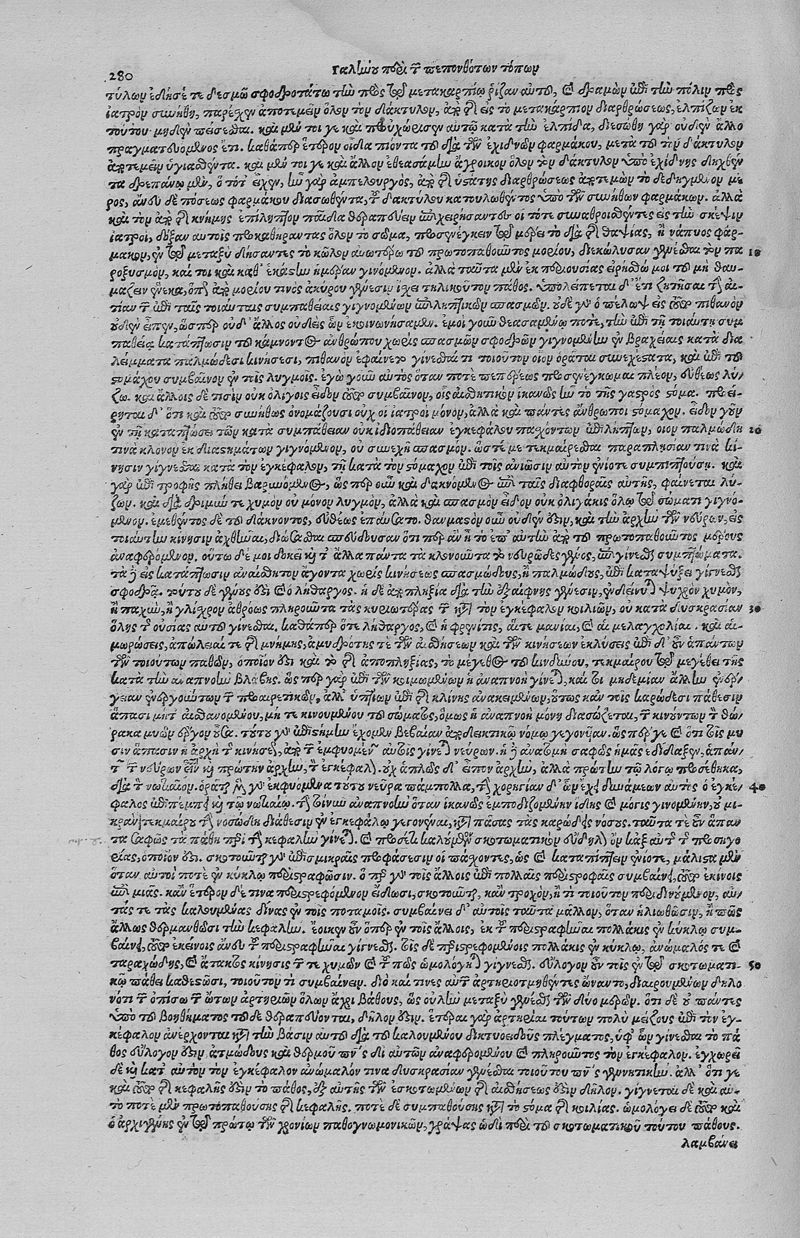 280 Γαληνοῦ περὶ τῶν πεπονθότων τόπων
τύλων ἔδησέ τε δεσμῷ σφοδροτάτῳ τὴν πρὸς τῷ μετακαρπίῳ ῥίζαν αὐτοῦ, καὶ δραμὼν ἐπὶ τὴν πόλιν πρὸς
ἰατρὸν συνήθη, παρέσχεν ἀποτεμεῖν ὅλον τὸν δάκτυλον, ἀπὸ τῆς εἰς τὸ μετακάρπιον διαρθρώσεως, ἐλπίζων ἐκ
τούτου μηδὲν πείσεσθαι. καὶ μέν τοι γε καὶ προὐχώρησεν αὐτῷ κατὰ τὴν ἐλπίδα, διεσώθη γὰρ οὐδὲν ἄλλο
πραγματευσάμενος ἔτι. καθάπερ ἕτερον οἶδα πιόντα τοῦ διὰ τῶν ἐχιδνῶν φαρμάκου, μετὰ τὸ τὴν δάκτυλον
ἀποτεμεῖν ὑγιασθέντα. καὶ μέν τοι γε καὶ ἄλλον ἐθεασάμην ἄγροικον ὅλον τὸν δάκτυλον ὑπὸ ἐχίδνης δηχθέν
τα δρεπάνῳ μὲν, ᾧ τότ' εἶχεν, ἦν γὰρ ἀμπελουργὸς, ἀπὸ τῆς ὑστάτης διαρθρώσεως ἀποτεμὼν τὸ δεδηγμένον μέ
ρος, ἄνευ δὲ πόσεως φαρμάκου διασωθέντα, τοῦ δακτύλου κατουλωθέντος ὑπὸ τῶν συνήθων φαρμάκων. ἀλλὰ
καὶ τὸν ἀπὸ τῆς κνήμης ἐπίληπτον παῖδα θεραπεύειν ἐπιχειρήσαντες οἱ τότε συναθροισθέντες εἰς τὴν σκέψιν
ἰατροὶ, δόξαν αὐτοῖς προκαθήραντας ὅλον τὸ σῶμα, προσενεγκεῖν τῷ μέρει τὸ διὰ τῆς θαψίας, ἢ νάπυος φάρ
μακον, ἐν τῷ μεταξὺ δήσαντες τὸ κῶλον ἀνωτέρω τοῦ πρωτοπαθοῦντος μορίου, διεκώλυσαν γενέσθαι τὸν πα 10
ροξυσμὸν, καί τοι καὶ καθ' ἑκάστην ἡμέραν γινόμενον. ἀλλὰ ταῦτα μὲν ἐκ περιουσίας εἰρήσθω μοι τοῦ μὴ θαυ
μάζειν ἕνεκα, ὅπως ἀπὸ μορίου τινὸς ἀκύρου γένεσιν ἔχει τηλικοῦτον πάθος. ὑπολείπεται δ' ἔτι ζητῆσαι τὴν αἰ
τίαν τῶν ἐπὶ ταῖς τοιαύταις συμπαθείαις γιγνομένων ἐπιληπτικῶν σπασμῶν. οὐδὲ γὰρ ὁ πέλοψ εἰς τοῦτο πιθανὸν
οὐδὲν εἶπεν, ὥσπερ οὐδ' ἄλλος οὐδεὶς ὧν ἐκοινώνησα μέν. ἐμοὶ γοῦν θεασαμένῳ ποτὲ, τὴν ἐπὶ τῇ τοιαύτῃ συμ
παθείᾳ κατάπτωσιν τοῦ κάμνοντος ἀνθρώπου χωρὶς σπασμῶν σφοδρῶν γιγνομένην ἐν βραχείαις κατὰ δια
λείμματα παλμώδεσι κινήσεσι, πιθανὸν ἐφαίνετο γίνεσθαί τι τοιοῦτον οἷον ὁρᾶται συνεχέστατα, καὶ ἐπὶ τοῦ
στομάχου συμβαῖνον ἐν τοῖς λυγμοῖς. ἐγὼ γοῦν αὐτὸς ὅταν ποτὲ πεπέρεως προσενέγκωμαι πλέον, εὐθέως λύ
ζω. καὶ ἄλλοις δέ τισιν οὐκ ὀλίγοις εἶδον τοῦτο συμβαῖνον, οἷς αἰσθητικὸν ἱκανῶς ἦν τὸ τῆς γαστρὸς στόμα. προεί
ρηται δ' ὅτι καὶ τοῦτο συνήθως ὀνομάζουσιν οὐχ οἱ ἰατροὶ μόνον, ἀλλὰ καὶ πάντες ἄνθρωποι στόμαχον. εἶδον γοῦν
ἐν τῇ καταπτώσει τῶν κατὰ συμπάθειαν οὐκ ἰδιοπάθειαν ἐγκεφάλου πασχόντων ἐπιλήπτων, οἷον παλμώδη 20
τινὰ κλόνον ἐκ διαστημάτων γιγνόμενον, οὐ συνεχῆ σπασμόν. ὥστέ με τεκμαίρεσθαι παραπλησίαν τινὰ κί
νησιν γίγνεσθαι κατὰ τὸν ἐγκέφαλον, τῇ κατὰ τὸν στόμαχον ἐπὶ τοῖς ἀνιῶσιν αὐτὸν ἐνίοτε συμπιπτούσῃ. καὶ
γὰρ ἐπὶ τροφῆς πλήθει βαρυνόμενος, ὥσπερ οὖν καὶ δακνόμενος ἐπὶ ταῖς διαφθοραῖς αὐτῆς, φαίνεται λύ
ζων. καὶ διὰ δριμύν τε χυμὸν οὐ μόνον λυγμὸν, ἀλλὰ καὶ σπασμὸν εἶδον οὐκ ὀλιγάκις ὅλῳ τῷ σώματι γιγνό
μενον. ἐμεθέντος δὲ τοῦ δάκνοντος, εὐθέως ἐπαύσατο. θαυμαστὸν οὖν οὐδέν ἐστιν, καὶ τὴν ἀρχὴν τῶν νεύρων, εἰς
τοιαύτην κίνησιν ἀχθῆναι, διώσασθαι σπεύδουσαν ὅτι περ ἂν ᾖ τὸ ἐπ' αὐτὴν ἀπὸ τοῦ πρωτοπαθοῦντος μέρους
ἀναφερόμενον. οὕτω δέ μοι δοκεῖ καὶ τἄλλα πάντα τὰ κλονοῦντα τὸ νευρῶδες γένος, ἐπιγίνεσθαι συμπτώματα.
τὰ δ' εἰς κατάπτωσιν ἀναίσθητον ἄγοντα χωρὶς κινήσεως σπασμώδους, ἢ παλμώδους, ἐπὶ καταψύξει γίγνεσθαι
σφοδρᾷ. τούτου δὲ γένους ἐστὶ καὶ ὁ λήθαργος. ἡ δὲ ἀποπληξία διὰ τὴν ἐξαίφνης γένεσιν, ἐνδείκνυται ψυχρὸν χυμὸν,
ἢ παχὺν, ἢ γλίσχρον ἀθρόως πληροῦντα τὰς κυριωτέρας τῶν κατὰ τὸν ἐγκέφαλον κοιλιῶν, οὐ κατὰ δυσκρασίαν 30
ὅλης τῆς οὐσίας αὐτοῦ γίνεσθαι, καθάπερ ὅ τε λήθαργος, καὶ ἡ φρενῖτις, αἵ τε μανίαι, καὶ αἱ μελαγχολίαι. καὶ αἱ
μωρώσεις, ἀπώλειαί τε τῆς μνήμης, ἀμυδρότης τε τῶν αἰσθήσεων καὶ τῶν κινήσεων ἐκλύσεις. ἐπὶ δ' οὖν ἁπάντων
τῶν τοιούτων παθῶν, ὁποῖόν ἐστι καὶ τὸ τῆς ἀποπληξίας, τὸ μέγεθος τοῦ κινδύνου, τεκμαίρου τῷ μεγέθει τῆς
κατὰ τὴν ἀναπνοὴν βλάβης. ὥσπερ γὰρ ἐπὶ τῶν κοιμωμένων ἡ ἀναπνοὴ γίνεται, καί τοι μηδεμίαν ἄλλην ἐνέρ
γειαν ἐνεργούντων τῶν προαιρετικῶν, ἀλλ' ὑπτίων ἐπὶ τῆς κλίνης ἀνακειμένων, οὕτως κἀν τοῖς καρώδεσι πάθεσιν
ἅπασι μήτ' αἰσθανομένου, μήτε κινουμένου τοῦ σώματος, ὅμως ἡ ἀναπνοὴ μόνη διασώζεται, τῶν κινούντων τὸν θώ
ρακα μυῶν ἔργον οὖσα. τοῦτο γὰρ ἐπιστήμην ἔχομεν βεβαίαν ἀποδεικτικῷ νόμῳ γεγονυῖαν. ὥσπερ γε καὶ ὅτι τοῖς μυ
σὶν ἅπασιν ἡ ἀρχὴ τῆς κινήσεως, ἀπὸ τῶν ἐμφυομένων αὐτοῖς γίνεται νεύρων. ἡ δ' ἀνατομὴ σαφῶς ἡμᾶς ἐδίδαξεν, ἁπάν
των τῶν νεύρων εἶναι καὶ πρώτην ἀρχὴν, τὸν ἐγκέφαλον. οὐχ ἁπλῶς δ' εἶπον ἀρχὴν, ἀλλὰ πρώτην τῷ λόγῳ προσέθηκα,
διὰ τὸν νωτιαῖον. ὁρᾶται μὲν γὰρ ἐκφυόμενα τούτου νεῦρα πάμπολλα, τὴν χορηγίαν δ' ὧν ἔχει δυνάμεων αὐτὸς ὁ ἐγκέ 40
φαλος ἐπιπέμπει καὶ τῷ νωτιαίῳ. τὴν τοίνυν ἀναπνοὴν ὅταν ἱκανῶς ἐμποδιζομένην ἴδῃς καὶ μόγις γινομένην, οὐ μι
κρὰν τεκμαίρου τὴν νοσώδη διάθεσιν ἐν ἐγκεφάλῳ γεγονέναι, κατὰ πάσας τὰς καρώδεις νόσους. ταῦτά τε οὖν ἅπαν
τα σαφῶς τὰ πάθη περὶ τὴν κεφαλὴν γίνεται. καὶ προσέτι καλούμενον σκοτωματικὸν εὔδηλον κἀξ αὐτῆς τῆς προσηγο
ρίας, ὁποῖόν ἐστι. σκοτοῦνται γὰρ ἐπὶ σμικραῖς προφάσεσιν οἱ πάσχοντες, ὡς καὶ καταπίπτειν ἐνίοτε, μάλιστα μὲν
ὅταν αὐτοί ποτε ἐν κύκλῳ περιστραφῶσιν. ὃ περ γὰρ τοῖς ἄλλοις ἐπὶ πολλαῖς περιστροφαῖς συμβαίνει, τοῦτο ἐκείνοις
ἐπὶ μιᾶς. κἂν ἕτερον δέ τινα περιστρεφόμενον εἴδωσι, σκοτοῦνται, κἂν τροχὸν, ἤ τι τοιοῦτον περιδινούμενον, αὐ
τάς τε τὰς καλουμένας δίνας ἐν τοῖς ποταμοῖς. συμβαίνει δ' αὐτοῖς ταῦτα μᾶλλον, ὅταν ἡλιωθῶσιν, ἤ πως
ἄλλως θερμανθῶσι τὴν κεφαλήν. ἔοικεν οὖν ὅπερ ἐν τοῖς ἄλλοις, ἐκ τοῦ περιστραφῆναι πολλάκις ἐν κύκλῳ συμ
βαίνει, τοῦτο ἐκείνοις ἄνευ τοῦ περιστραφῆναι γίγνεσθαι. τοῖς δὲ περιστρεφομένοις πολλάκις ἐν κύκλῳ, ἀνώμαλός τε καὶ
ταραχώδης, καὶ ἄτακτος κίνησις τῶν τε χυμῶν καὶ τοῦ πνεύματος ὡμολόγηται γίγνεσθαι. εὔλογον οὖν τοῖς ἐν τῷ σκοτωματι- 50
κῷ πάθει καθεστῶσι, τοιοῦτόν τι συμβαίνειν. διὸ καί τινες αὐτῶν ἀρτηριοτμηθέντες ὤναντο, διαιρουμένων δηλο
νότι τῶν ὀπίσω τῶν ὤτων ἀρτηριῶν ὅλων ἄχρι βάθους, ὡς οὐλὴν μεταξὺ γενέσθαι τῶν δύο μερῶν. ὅτι δὲ οὐ πάντες
ὑπὸ τοῦ βοηθήματος τοῦδε θεραπεύονται, δῆλόν ἐστιν. ἕτεραι γὰρ ἀρτηρίαι τούτων πολὺ μείζους ἐπὶ τὸν ἐγ
κέφαλον ἀνέρχονται κατὰ τὴν βάσιν αὐτοῦ διὰ τοῦ καλουμένου δικτυοειδοῦς πλέγματος, ὑφ' ὧν γίνεσθαι τὸ πά
θος εὔλογόν ἐστιν, ἀτμώδους καὶ θερμοῦ πνεύματος δι' αὐτῶν ἀναφερομένου καὶ πληροῦντος τὸν ἐγκέφαλον. ἐγχωρεῖ
δὲ καὶ κατ' αὐτὸν τὸν ἐγκέφαλον ἀνώμαλόν τινα δυσκρασίαν γενέσθαι τοιούτου πνεύματος γεννητικήν. ἀλλ' ὅτι γε
καὶ τοῦτο τῆς κεφαλῆς ἐστιν τὸ πάθος, ἐξ αὐτῆς τῶν ἐσκοτωμένων τῆς αἰσθήσεως ἐστὶν δῆλον. γίγνεται δὲ καὶ αὐ-
τό ποτε μὲν πρωτοπαθούσης τῆς κεφαλῆς. ποτὲ δὲ συμπαθούσης κατὰ τὸ στόμα τῆς κοιλίας. ὡμολόγει δὲ τοῦτο καὶ
ὁ ἀρχιγένης ἐν τῷ πρώτῳ τῶν χρονίων παθογνωμονικῶν, γράψας ὡδὶ περὶ τοῦ σκοτωματικοῦ τούτου πάθους.
λαμβάνει